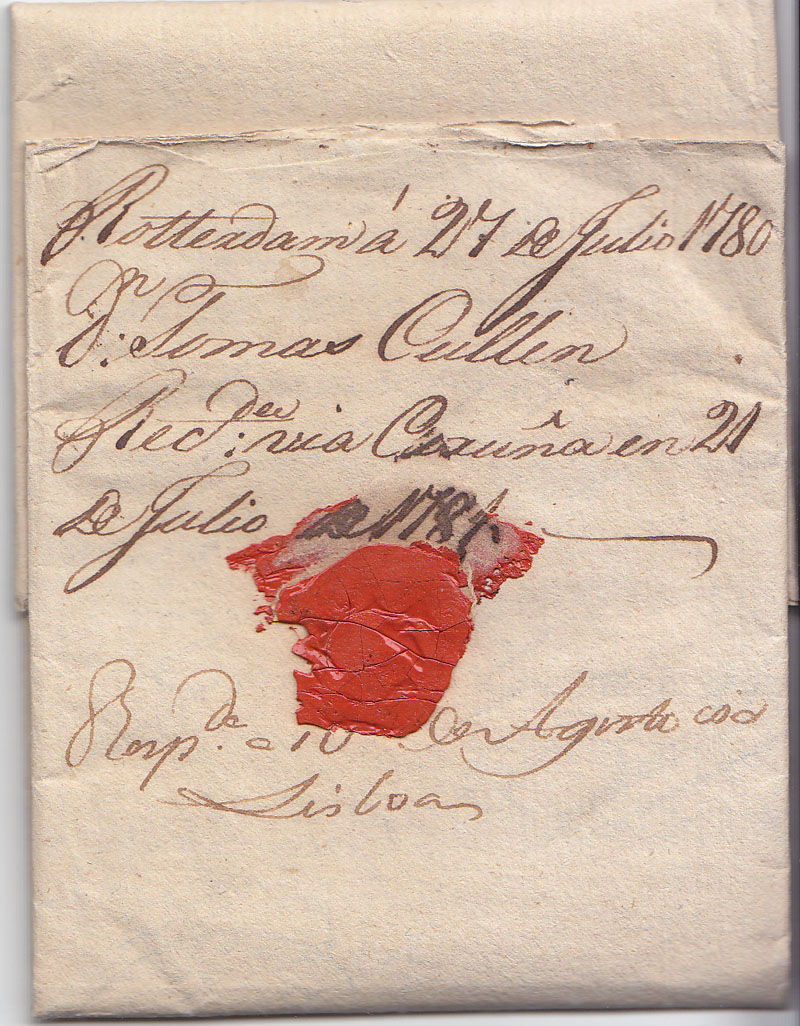 Rotterdam á 27 de Julio 1780
Dn: Tomas Cullen
Recdea: via Coruña en 21
de Julio de 1781.
Respde. a 10 de Agosto
Lisboa